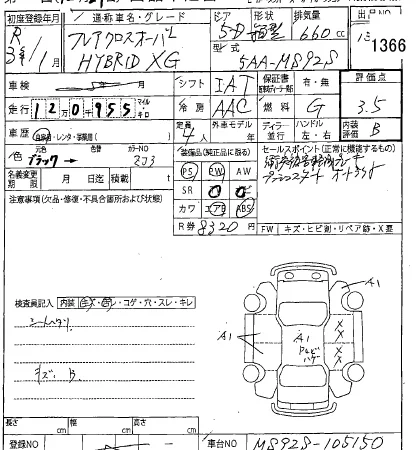 初度登録年月
通称車名・グレード
ドア
形状
排気量
出品NO
R
3年/1月
フレアクロスオーバー
HYBRID XG
5D
660 cc
型式
5AA-MS92S
1366
車検
年
月
シフト
IAT
保証書
有・無
評価点
走行
12万0955
マイル
キロ
冷房
AAC
燃料
G
3.5
車歴
自家用・レンタ・事業用
定員
4人
外車モデル
ディーラー
並行
ハンドル
左・右
内装評価
B
色
元色
ブラック→
色替
カラーNO
ZJ3
装備品(純正品に限る)
セールスポイント(正常に機能するもの)
名義変更期限
月
日迄
積載
t
PS
PW
AW
SR
ナビ
カワ
エアB
ABS
プッシュスタート オートライト
R券 8320円
FW
キズ・ヒビ割・リペア跡・X要
注意事項(欠品・修復・不具合箇所および状態)
検査員記入
内装
コゲ・穴・スレ・キレ
シートヘタリ
キズ B
A1
A1
A1
A1
長さ
cm
幅
cm
高さ
cm
登録NO
車台NO
MS92S-105150